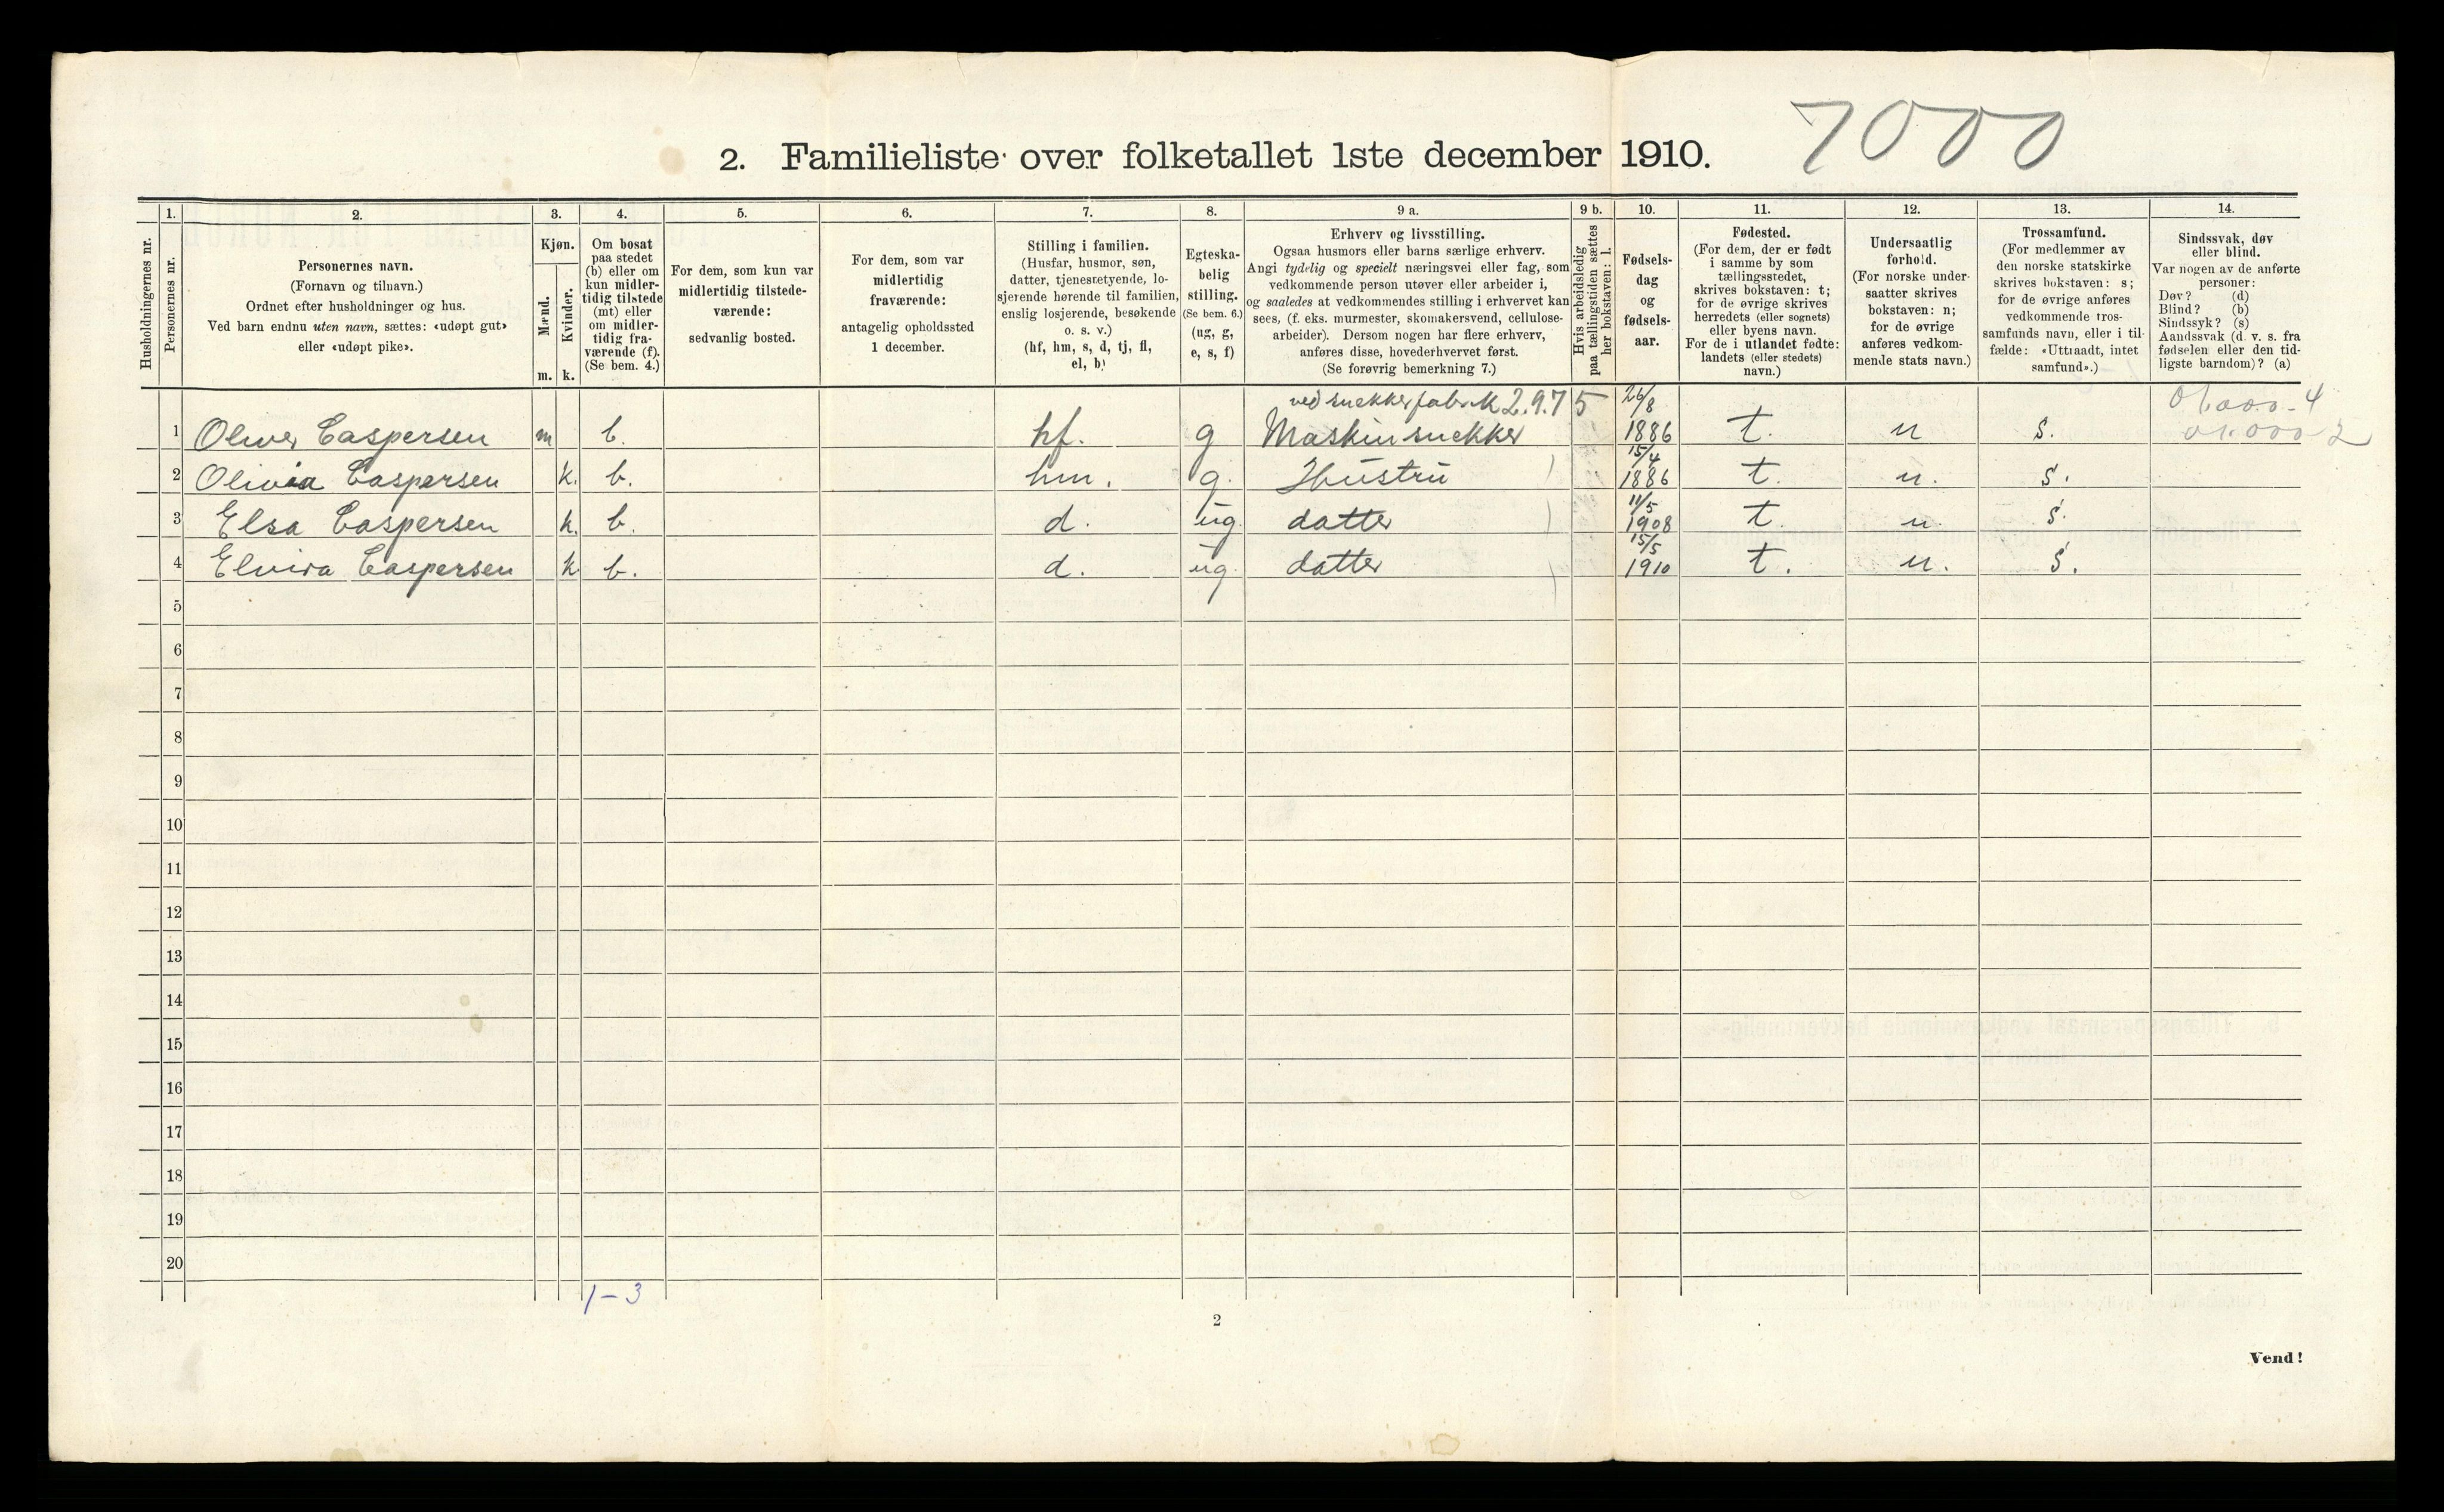 7000
2. Familieliste over folketallet 1ste december 1910.
1. 2. 3. 4. 5. 6. 7. 8. 9 a. 9 b. 10. 11. 12. 13. 14.
Husholdningernes nr.
Personernes nr.
Personernes navn.
(Fornavn og tilnavn.)
Ordnet efter husholdninger og hus.
Ved barn endnu uten navn, sættes: «udøpt gut»
eller «udøpt pike».
Kjøn.
Mænd.
Kvinder.
m. k.
Om bosat
paa stedet
(b) eller om
kun midler-
tidig tilstede
(mt) eller
om midler-
tidig fra-
værende (f).
(Se bem. 4.)
For dem, som kun var
midlertidig tilstede-
værende:
sedvanlig bosted.
For dem, som var
midlertidig
fraværende:
antagelig opholdssted
1 december.
Stilling i familien.
(Husfar, husmor, søn,
datter, tjenestetyende, lo-
sjerende hørende til familien,
enslig losjerende, besøkende
o. s. v.)
(hf, hm, s, d, tj, fl,
el, b)
Egteska-
belig
stilling.
(Se bem. 6.)
(ug, g,
e, s, f)
Erhverv og livsstilling.
Ogsaa husmors eller barns særlige erhverv.
Angi tydelig og specielt næringsvei eller fag, som
vedkommende person utøver eller arbeider i,
og saaledes at vedkommendes stilling i erhvervet kan
sees, (f. eks. murmester, skomakersvend, cellulose-
arbeider). Dersom nogen har flere erhverv,
anføres disse, hovederhvervet først.
(Se forøvrig bemerkning 7.)
Hvis arbeidsledig
paa tællingstiden sættes
her bokstaven: l.
Fødsels-
dag
og
fødsels-
aar.
Fødested.
(For dem, der er født
i samme by som
tællingsstedet,
skrives bokstaven: t;
for de øvrige skrives
herredets (eller sognets)
eller byens navn.
For de i utlandet fødte:
landets (eller stedets)
navn.)
Undersaatlig
forhold.
(For norske under-
saatter skrives
bokstaven: n;
for de øvrige
anføres vedkom-
mende stats navn.)
Trossamfund.
(For medlemmer av
den norske statskirke
skrives bokstaven: s;
for de øvrige anføres
vedkommende tros-
samfunds navn, eller i til-
fælde: «Uttraadt, intet
samfund».)
Sindssvak, døv
eller blind.
Var nogen av de anførte
personer:
Døv? (d)
Blind? (b)
Sindssyk? (s)
Aandssvak (d. v. s. fra
fødselen eller den tid-
ligste barndom)? (a)
ved snekkerfabrik 2.9.7 5 26/8 4
1 Oliver Caspersen m b. hf. g Maskinsnekker 1886 t. n s. 01.000-2
15/4
2 Olivia Caspersen k. b. hm. g. Hustru 1886 t. n. s.
11/5
3 Elsa Caspersen k. b. d. ug. datter 1908 t. n. s.
15/5
4 Elvira Caspersen k b. d. ug. datter 1910 t. n. s.
5
6
7
8
9
10
11
12
13
14
15
16
17
18
19
20
1-3
2
Vend!